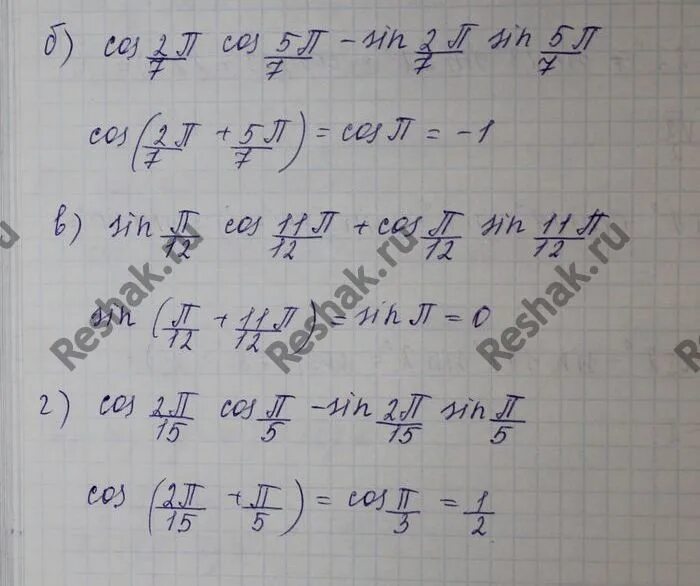 б) cos 2П/7 cos 5П/7 - sin 2П/7 sin 5П/7
cos(2П/7 + 5П/7) = cosП = -1
в) sin П/12 cos 11П/12 + cos П/12 sin 11П/12
sin (П/12 + 11П/12) = sinП = 0
г) cos 2П/15 cos П/5 - sin 2П/15 sin П/5
cos (2П/15 + П/5) = cos П/3 = 1/2
Reshak.ru
Reshak.ru
Reshak.ru